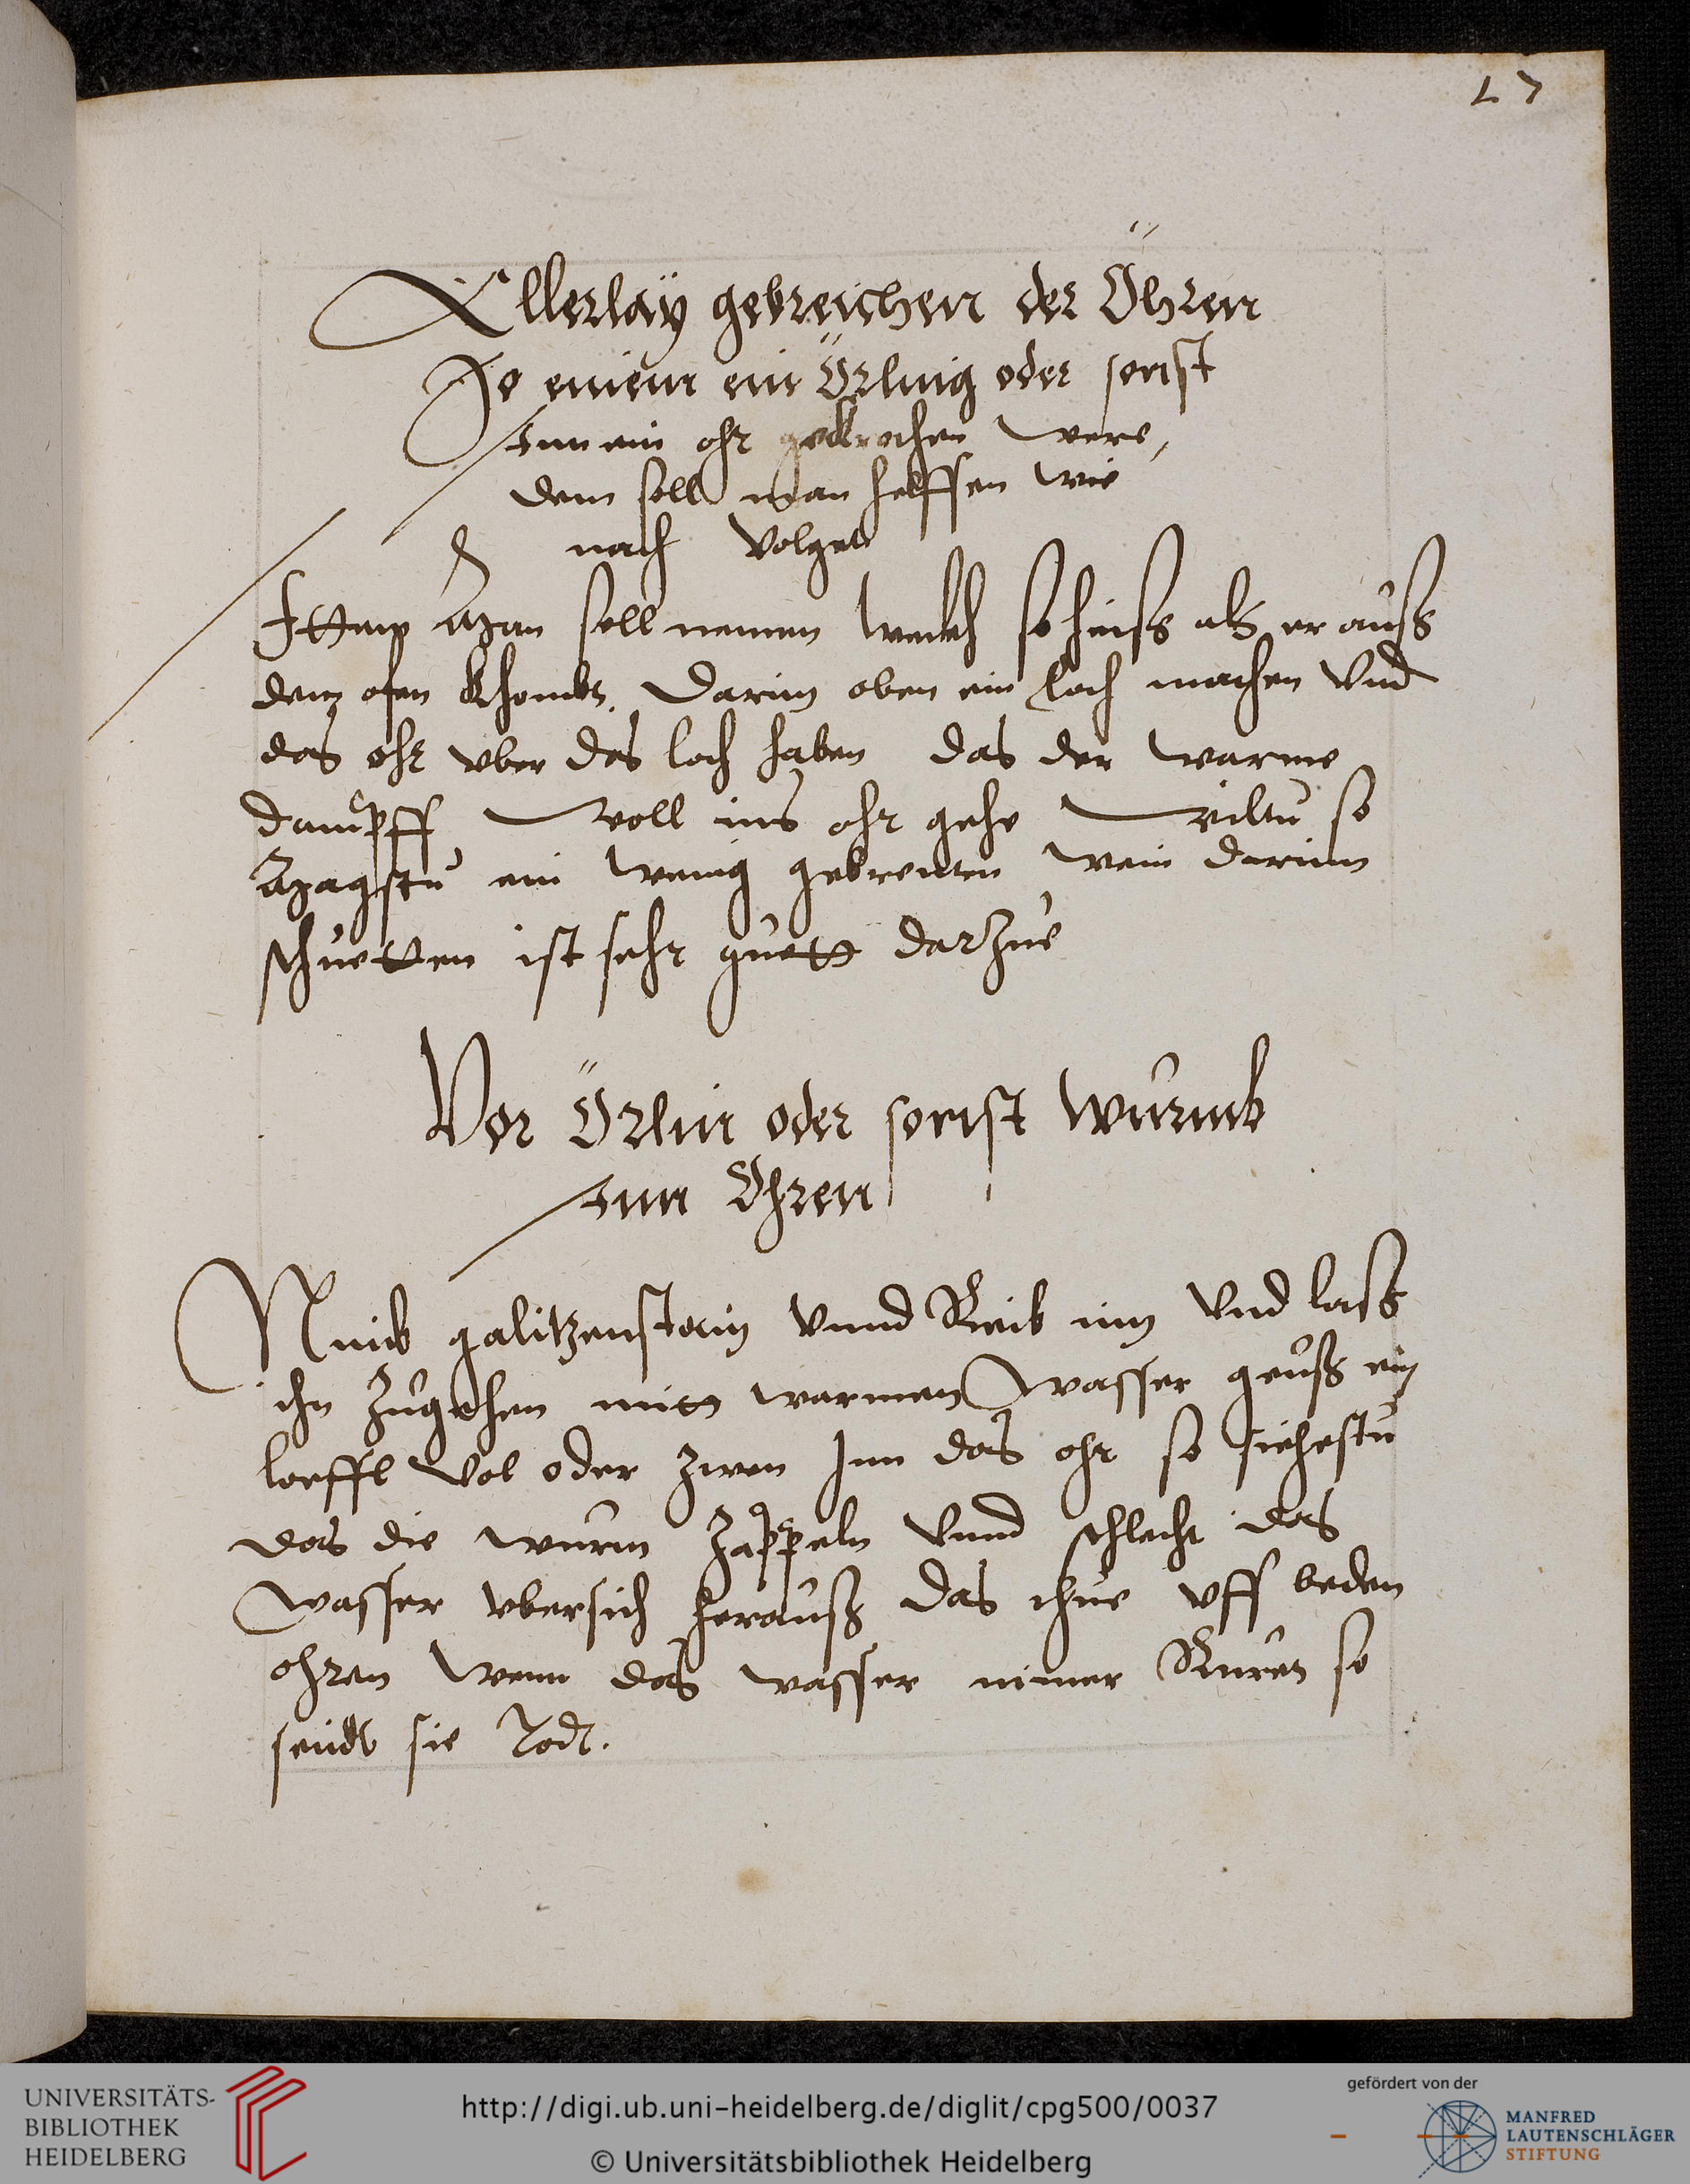 17
Allerlaÿ gebreichen der Öhren
So einem ein Örling oder sonst
Inn ein ohr gekrochen were,
dem soll man helffen wie
nach Volget
Ittem Man soll nemen weckh so heiss als er auß
dem ofen khombt. Darim oben ein loch machen Vnd
das ohr vber das loch haben das der warme
dampff woll ins ohr gehe wiltu so
Magstu ein wenig gebrenten wein darinn
schuetten ist sehr guett darzue
Vor Örlin oder sonst wurmb
Inn Ohren
Nimb galitzenstain Vnnd Reib im Vnd laß
ihn zugehen mitt warmen wasser geuß ein
loeffl Vol oder zwen Inn das ohr so siehestu
das die wurm zappeln Vnnd schlecht das
wasser vbersich herauß das thue vff beden
ohren wenn das wasser nimer Ruret so
seindt sie Todt.
UNIVERSITÄTS-
BIBLIOTHEK
HEIDELBERG
http://digi.ub.uni-heidelberg.de/diglit/cpg500/0037
© Universitätsbibliothek Heidelberg
gefördert von der
MANFRED
LAUTENSCHLÄGER
STIFTUNG